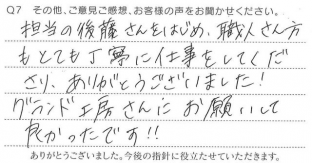 Q7 その他、ご意見ご感想、お客様の声をお聞かせください。
担当の後藤さんをはじめ、職人さん方
もとても丁寧に仕事をしてくだ
さり、ありがとうございました!
グランド工房さんにお願いして
良かったです!!
ありがとうございました。今後の指針に役立たせていただきます。